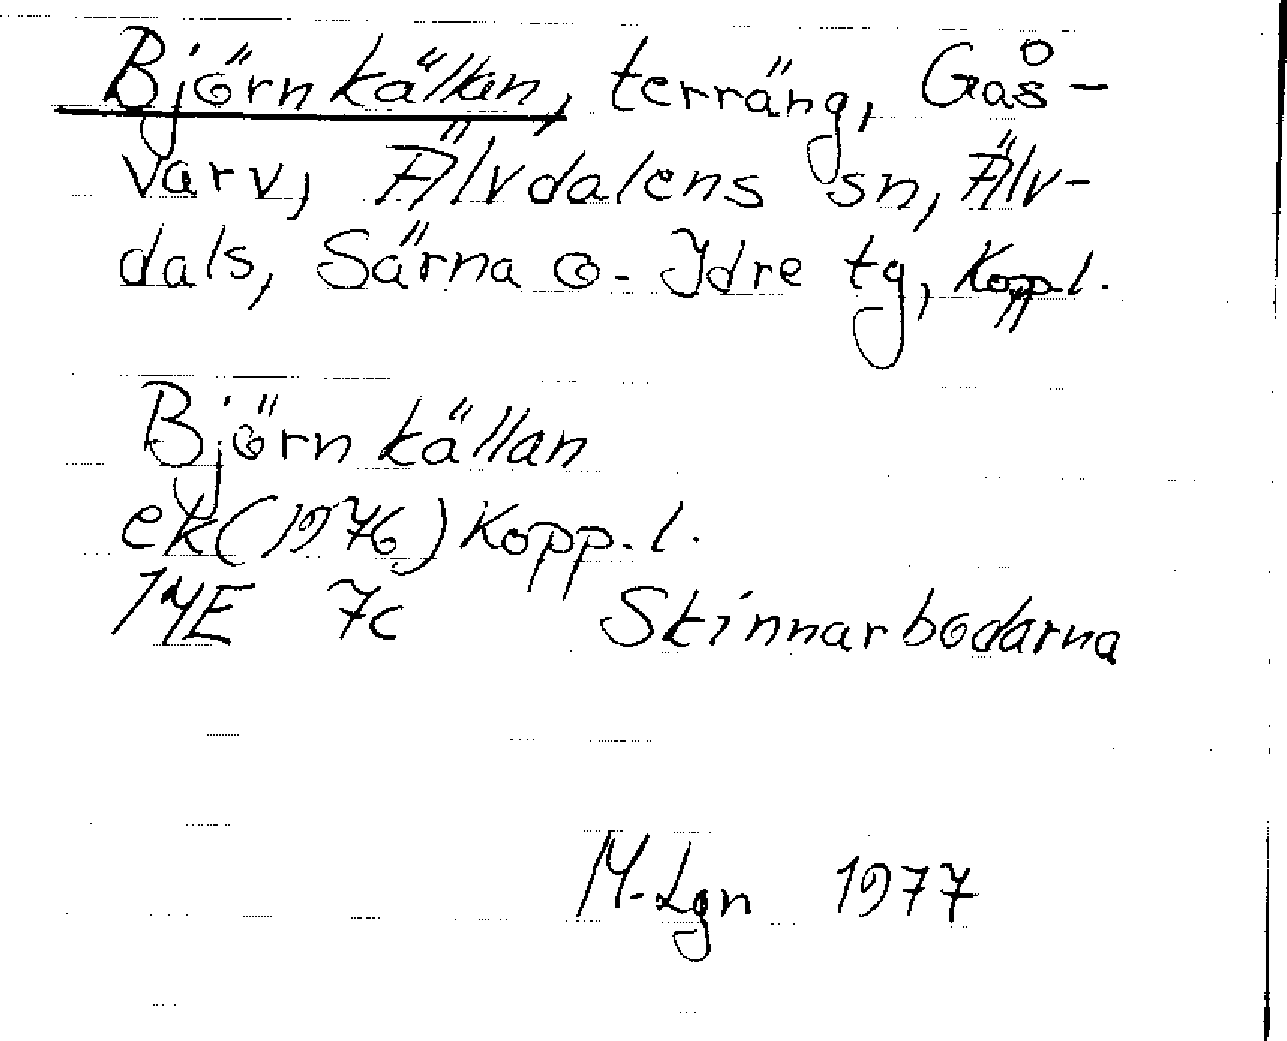 Björnkällan, terräng, Gås-
varv, Älvdalens sn, Älv-
dals, Särna o. Idre tg, Kopp.l.
Björnkällan
ek(1976) Kopp. l.
14E 7c Skinnarbodarna
M-Lgn 1977